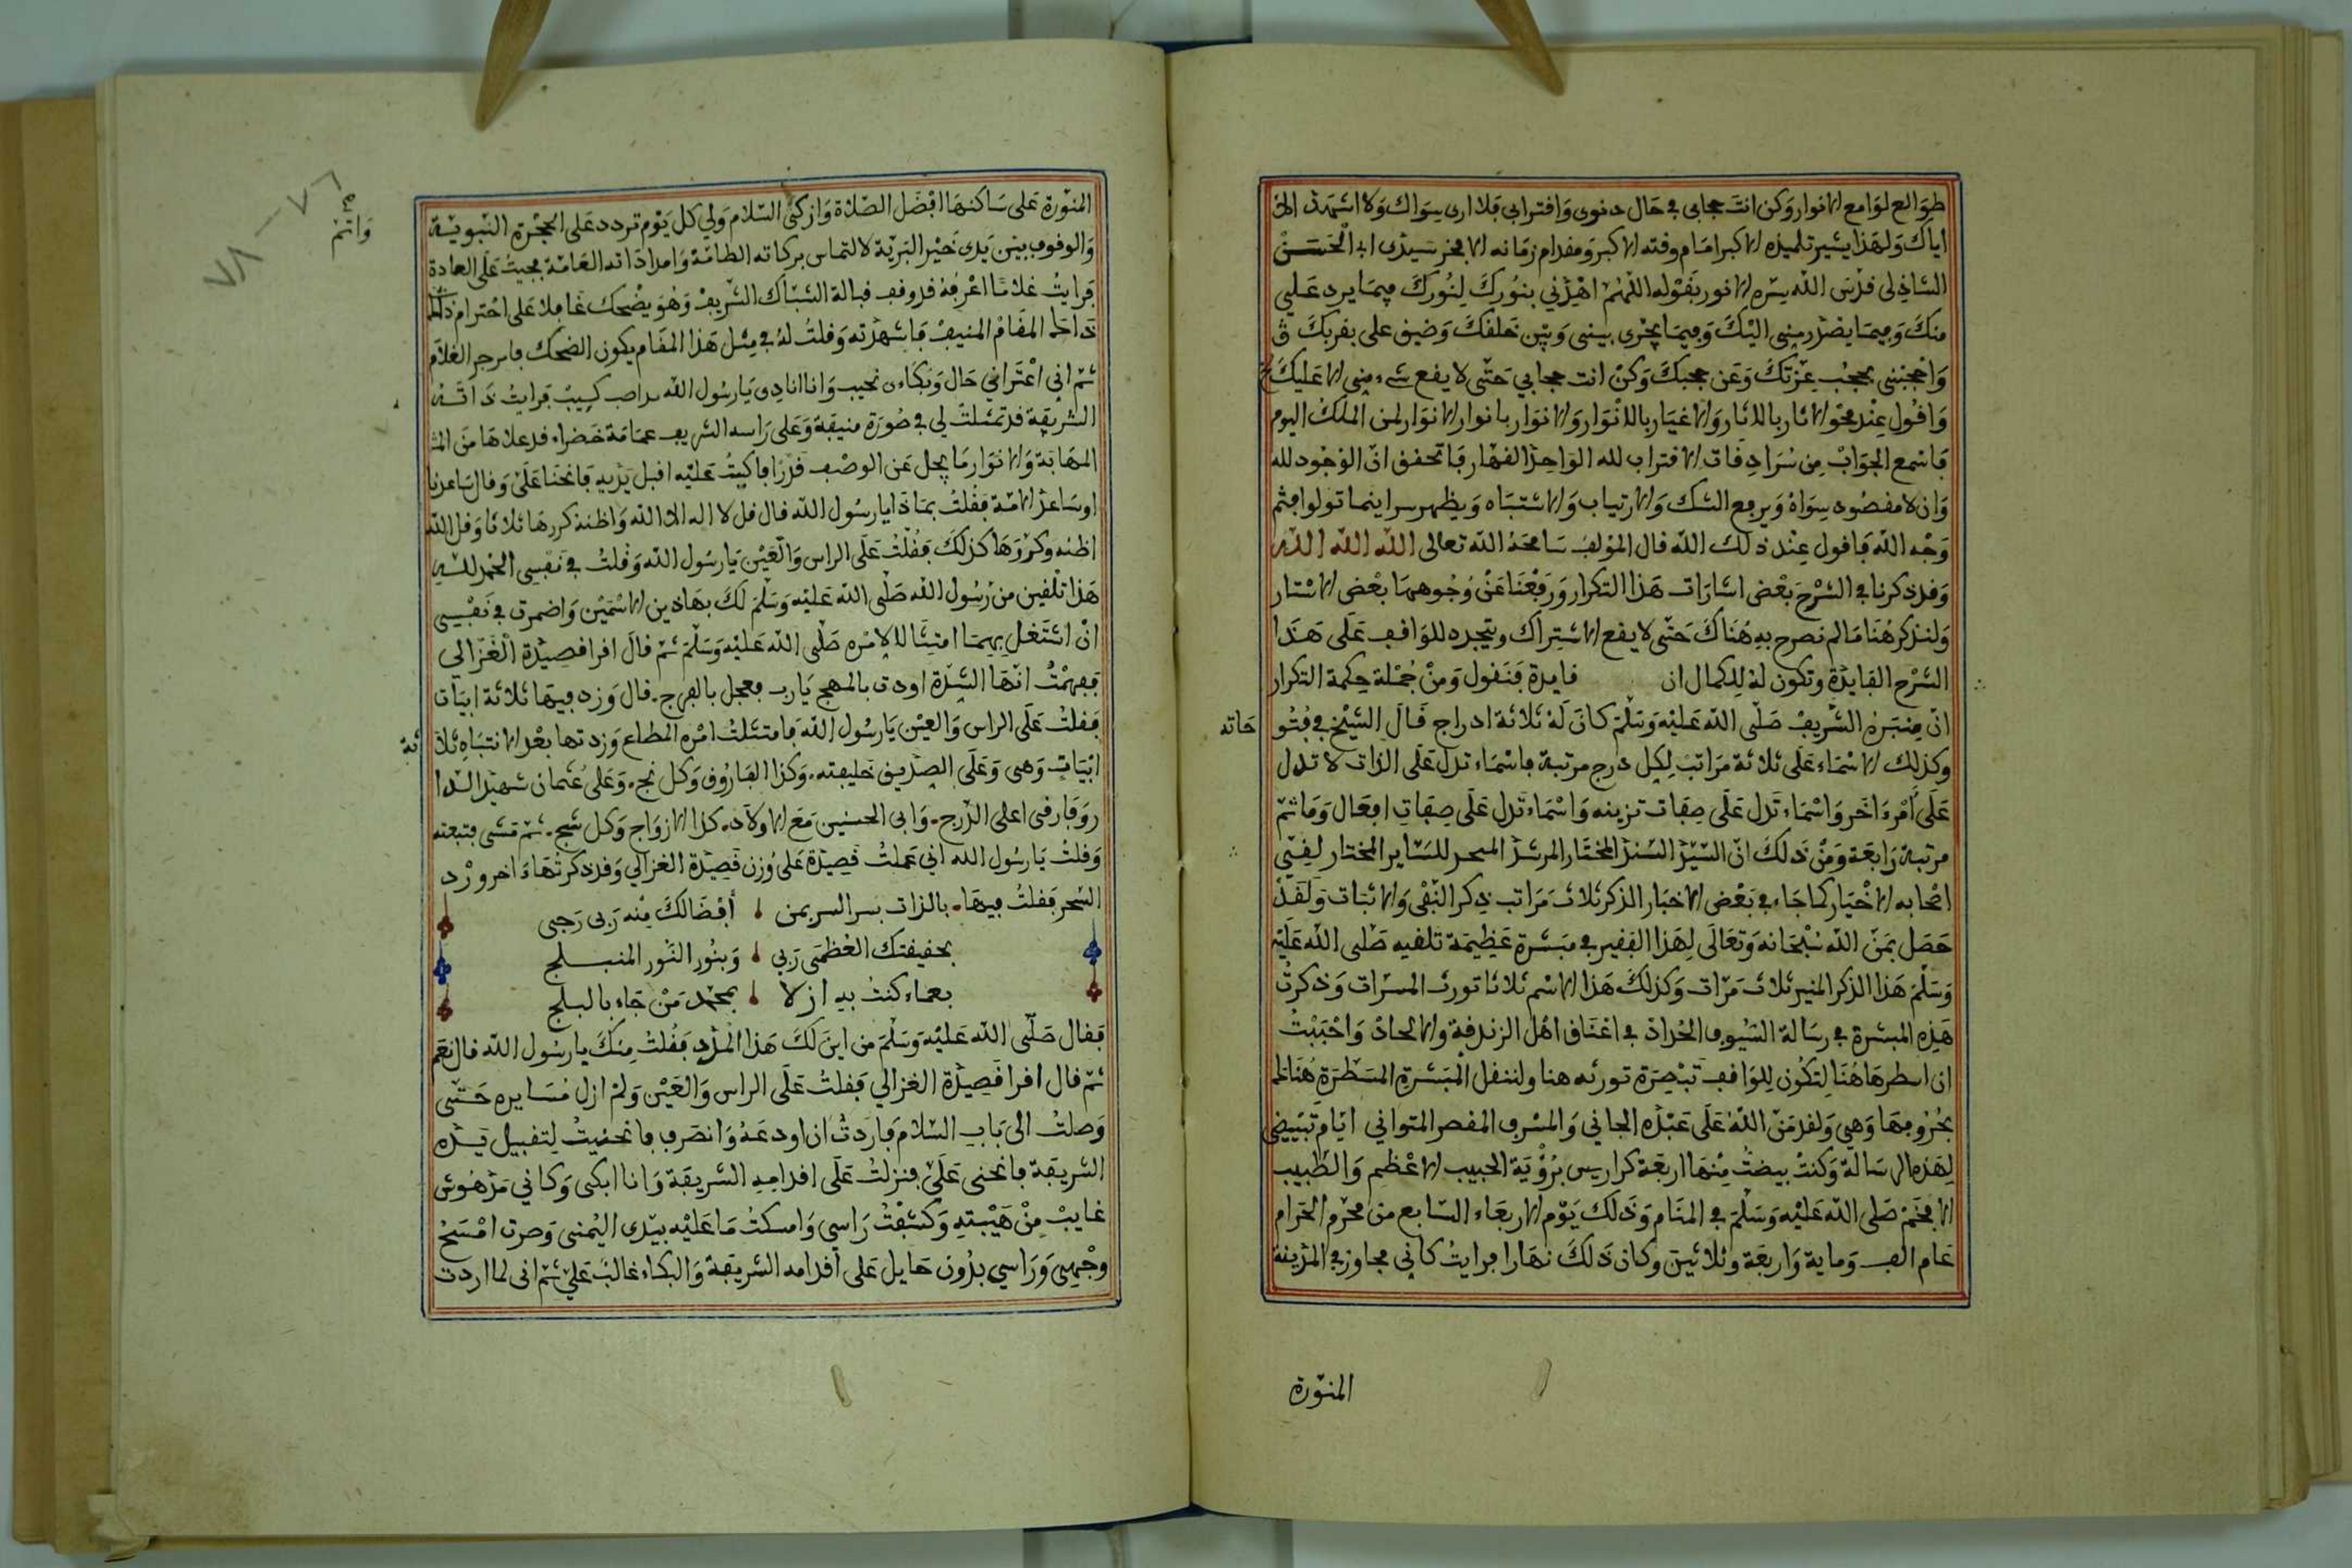 طوالع لوامع الانوار وكن انت حجابي في حال دنوى وافترابي فلا ارى سواك ولا اشهد الا
اياك ولهذا يشير تلميذه الاكبر امام وقته الاكبر ومقدام زمانه الافخر سيدى ابى الحسن
الشاذلى قدس الله سره الانور بقوله اللهم اهدني بنورك لنورك فيما يرد علي
منك وفيما يصدر مني اليك وفيما يجرى بيني وبين خلقك وضيق على بقربك
واحجبني بحجب عزتك وعن حجبك وكن انت حجابي حتى لا يقع شىء مني الا عليك
واقول عند محو الاثار بالاثار والاغيار بالانوار والانوار بانوار الانوار لمن الملك اليوم
فاسمع الجواب من سرادقات الاقتراب لله الواحد القهار فاتحقق ان الوجود لله
وان لا مقصود سواه ويرفع الشك والارتياب والاشتباه ويظهر سر اينما تولوا فثم
وجه الله فاقول عند ذلك الله قال المؤلف سامحه الله تعالى الله الله الله
وقد ذكرنا في الشرح بعض اشارات هذا التكرار ورفعنا عن وجوهها بعض الاستار
ولنذكر هنا ما لم نصرح به هناك حتى لا يقع الاشتراك ويتجدد للواقف على هذا
الشرح الفايدة وتكون له لدكمال ان فايدة فنقول ومن جملة حكمة التكرار
ان منبره الشريف صلى الله عليه وسلم كان له ثلاثة ادراج قال الشيخ في فتو
حاته
وكذلك الاسماء على ثلاثة مراتب لكل درج مرتبة فاسماء تدل على الذات لا تدل
على امرء اخر واسماء تدل على صفات تنزيه واسماء تدل على صفات افعال وما ثم
مرتبة رابعة ومن ذلك ان السيد السند المختار المرشد للساير المختار
اصحابه الاخيار كما جاء في بعض الاخبار الذكر ثلاث مراتب ذكر النفى والاثبات ولقد
حصل بمن الله سبحانه وتعالى لهذا الفقير في مبشرة عظيمة تلقيه صلى الله عليه
وسلم هذا الذكر المنير ثلاث مرات وكذلك هذا الاسم ثلاثا تورث المسرات وذكرت
هذه المبشرة في رسالة السيوف الحداد في اعناق اهل الزندقة والالحاد واحببت
ان اسطرها هنا لتكون للواقف تبصرة تورثه هنا ولننقل المبشرة المسطرة هنالك
بحروفها وهي ولقد من الله على عبده الجاني والمسرف المقصر المتواني ايام تبييضى
لهذه الرسالة وكنت بيضت منها اربعة كراريس برؤية الحبيب الاعظم والطبيب
الافخم صلى الله عليه وسلم في المنام وذلك يوم الاربعاء السابع من محرم الحرام
عام الف وماية واربعة وثلاثين وكان ذلك نهارا فرايت كاني مجاور في المدينة
المنورة
المنورة على ساكنها افضل الصلاة وازكى السلام ولي كل يوم تردد على الحجرة النبوية
والوقوف بين يدى خير البرية لالتماس بركاته الطامة وامداداته العامة بجيت على العادة
فرايت غلاما اعرفه قد وقف قبالة الشباك الشريف وهو يضحك غافلا على احترام ذلك
داخل المقام المنيف فاشهرته وقلت له في مثل هذا المقام يكون الضحك فانزجر الغلام
ثم اني اعتراني حال وبكاء نحيب وانا انادى يا رسول الله كييب فرايت ذاته
الشريفة قد تمثلت لي في صورة منيفة وعلى راسه الشريف عمامة خضراء قد علاها من
وانتم
المهابة والانوار ما يجل عن الوصف قدرا فاكبت عليه اقبل يديه فانحنا علي وقال ساعدنا
اوساعد الامة فقلت بماذا يا رسول الله قال قل لا اله الا الله واظنه كررها ثلاثا وقل الله
اظنه وكررها كذلك فقلت على الراس والعين يا رسول الله وقلت في نفسي الحمد لله
هذا تلقين من رسول الله صلى الله عليه وسلم لك بهاذين الاسمين واضمرت في نفسي
ان اشتغل بهما امتثالا لامره صلى الله عليه وسلم ثم قال اقرا قصيدة الغزالي
ففهمت انها الشدة اودت بالمهج يا رب فعجل بالفرج قال وزد فيها ثلاثة ابيات
فقلت على الراس والعين يا رسول الله فامتثلت امره المطاع وزدتها بعد الانتباه ثلا
ثة
ابيات وهى وعلى الصديق خليفته وكذا الفاروق وكل نج وعلى عثمان شهيد الدا
ر وفا رقى اعلى الدرج وابى الحسنين مع الاولاد كذا الازواج وكل شج ثم مشى فتبعته
وقلت يا رسول الله اني عملت قصيدة على وزن قصيدة الغزالي وقد ذكرتها اخر ورد
السحر فقلت فيها بالذات بسر السر بمن افضالك منه ربى رجى
بحقيقتك العظمى ربي وبنور النور المنبلج
بعماء كنت به ازلا بمحمد من جاء بالبلج
فقال صلى الله عليه وسلم من اين لك هذا المدد فقلت منك يا رسول الله قال نعم
ثم قال اقرا قصيدة الغزالي فقلت على الراس والعين ولم ازل مسايره حتى
وصلت الى باب السلام فاردت ان اودعه وانصرف فانحنيت لتقبيل يده
الشريفة فانحنى علي فنزلت على اقدامه الشريفة وانا ابكى وكاني مدهوش
غايب من هيبته وكشفت راسي وامسكت ما عليه بيدى اليمنى وصرت امسح
وجهي وراسي بدون حايل على اقدامه الشريفة والبكاء غالب علي ثم انى لما اردت
٧٦ - ٧٨